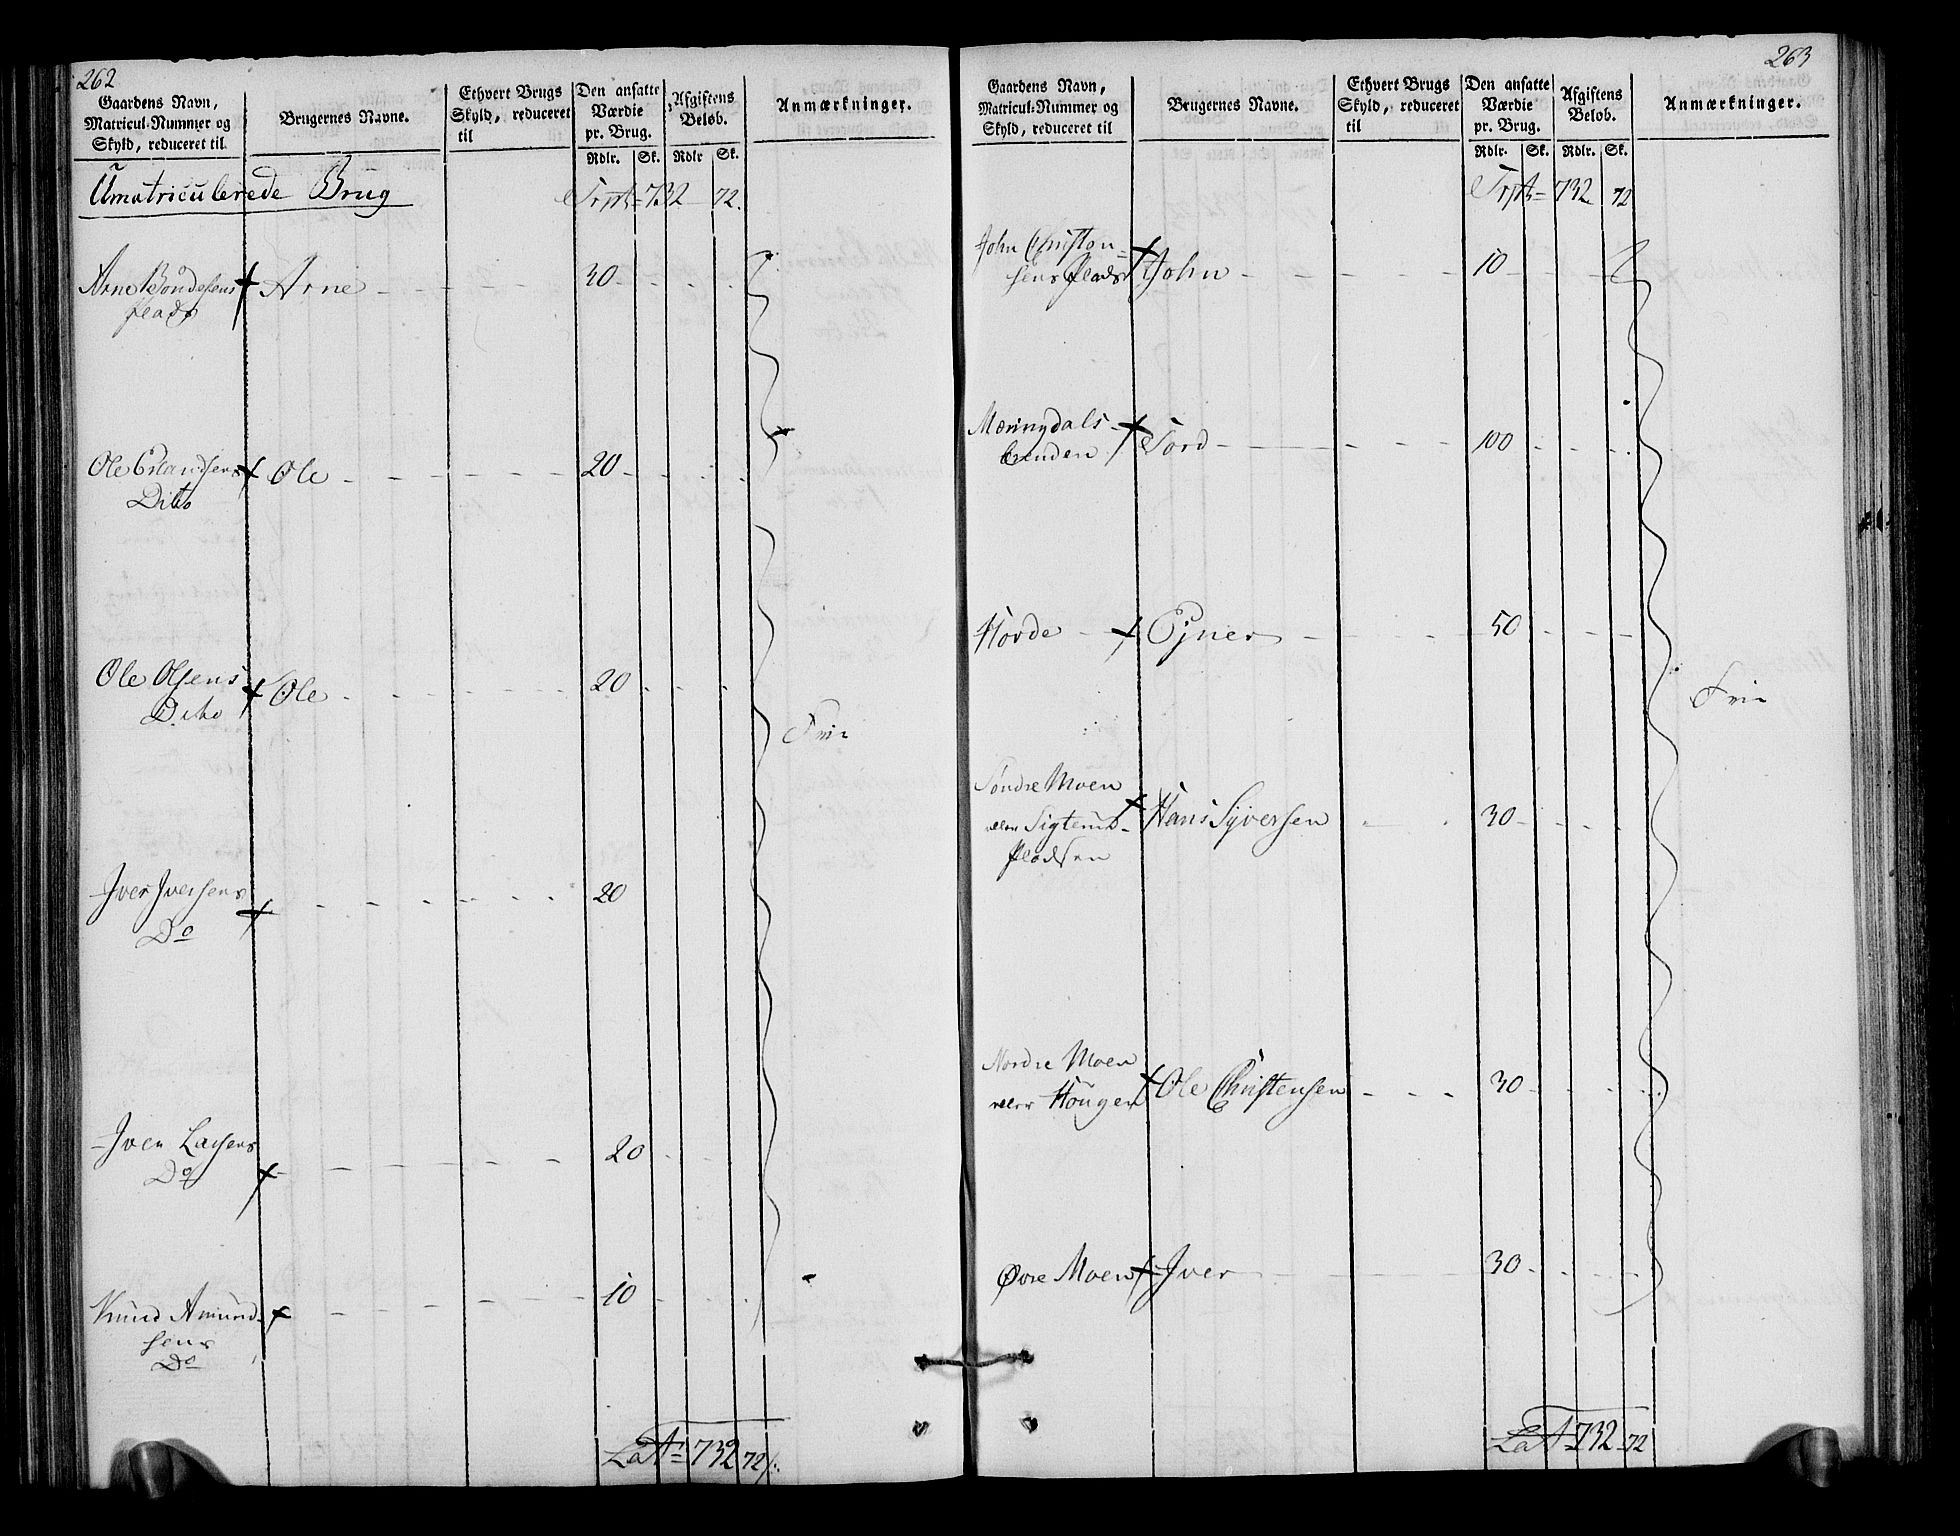 262
Gaardens Navn,
Matricul-Nummer og
Skyld, reduceret til
Brugernes Navne.
Ethvert Brugs
Skyld, reduceret
til
Den ansatte
Værdie
pr. Brug.
Rdlr. Sk.
Afgiftens
Beløb.
Rdlr Sk.
Anmærkninger.
Umatriculerede Brug
732 72.
Arne Bondesens
Plads
Arne 30
Ole Erlandsens
Dito
Ole 20
Ole Olsens
Dito
Ole 20
Fri
Iver Iversens
Do
20
Iver Larsens
Do
20
Knud Amund-
sens
Do
10
Lat 732 72
263
Gaardens Navn,
Matricul-Nummer og
Skyld, reduceret til
Brugernes Navne.
Ethvert Brugs
Skyld, reduceret
til
Den ansatte
Værdie
pr. Brug.
Rdlr. Sk.
Afgiftens
Beløb.
Rdlr. Sk.
Anmærkninger.
732 72
John Christen-
sens Plads
John 10
Tord 100
Horde
Ejner 50
Fri
Søndre Moen
Pladsen
Hans Syversen 30
Nordre Moen
eller Hougen
Ole Christensen 30
Øvre Moen Iver 30
Lat 732 72